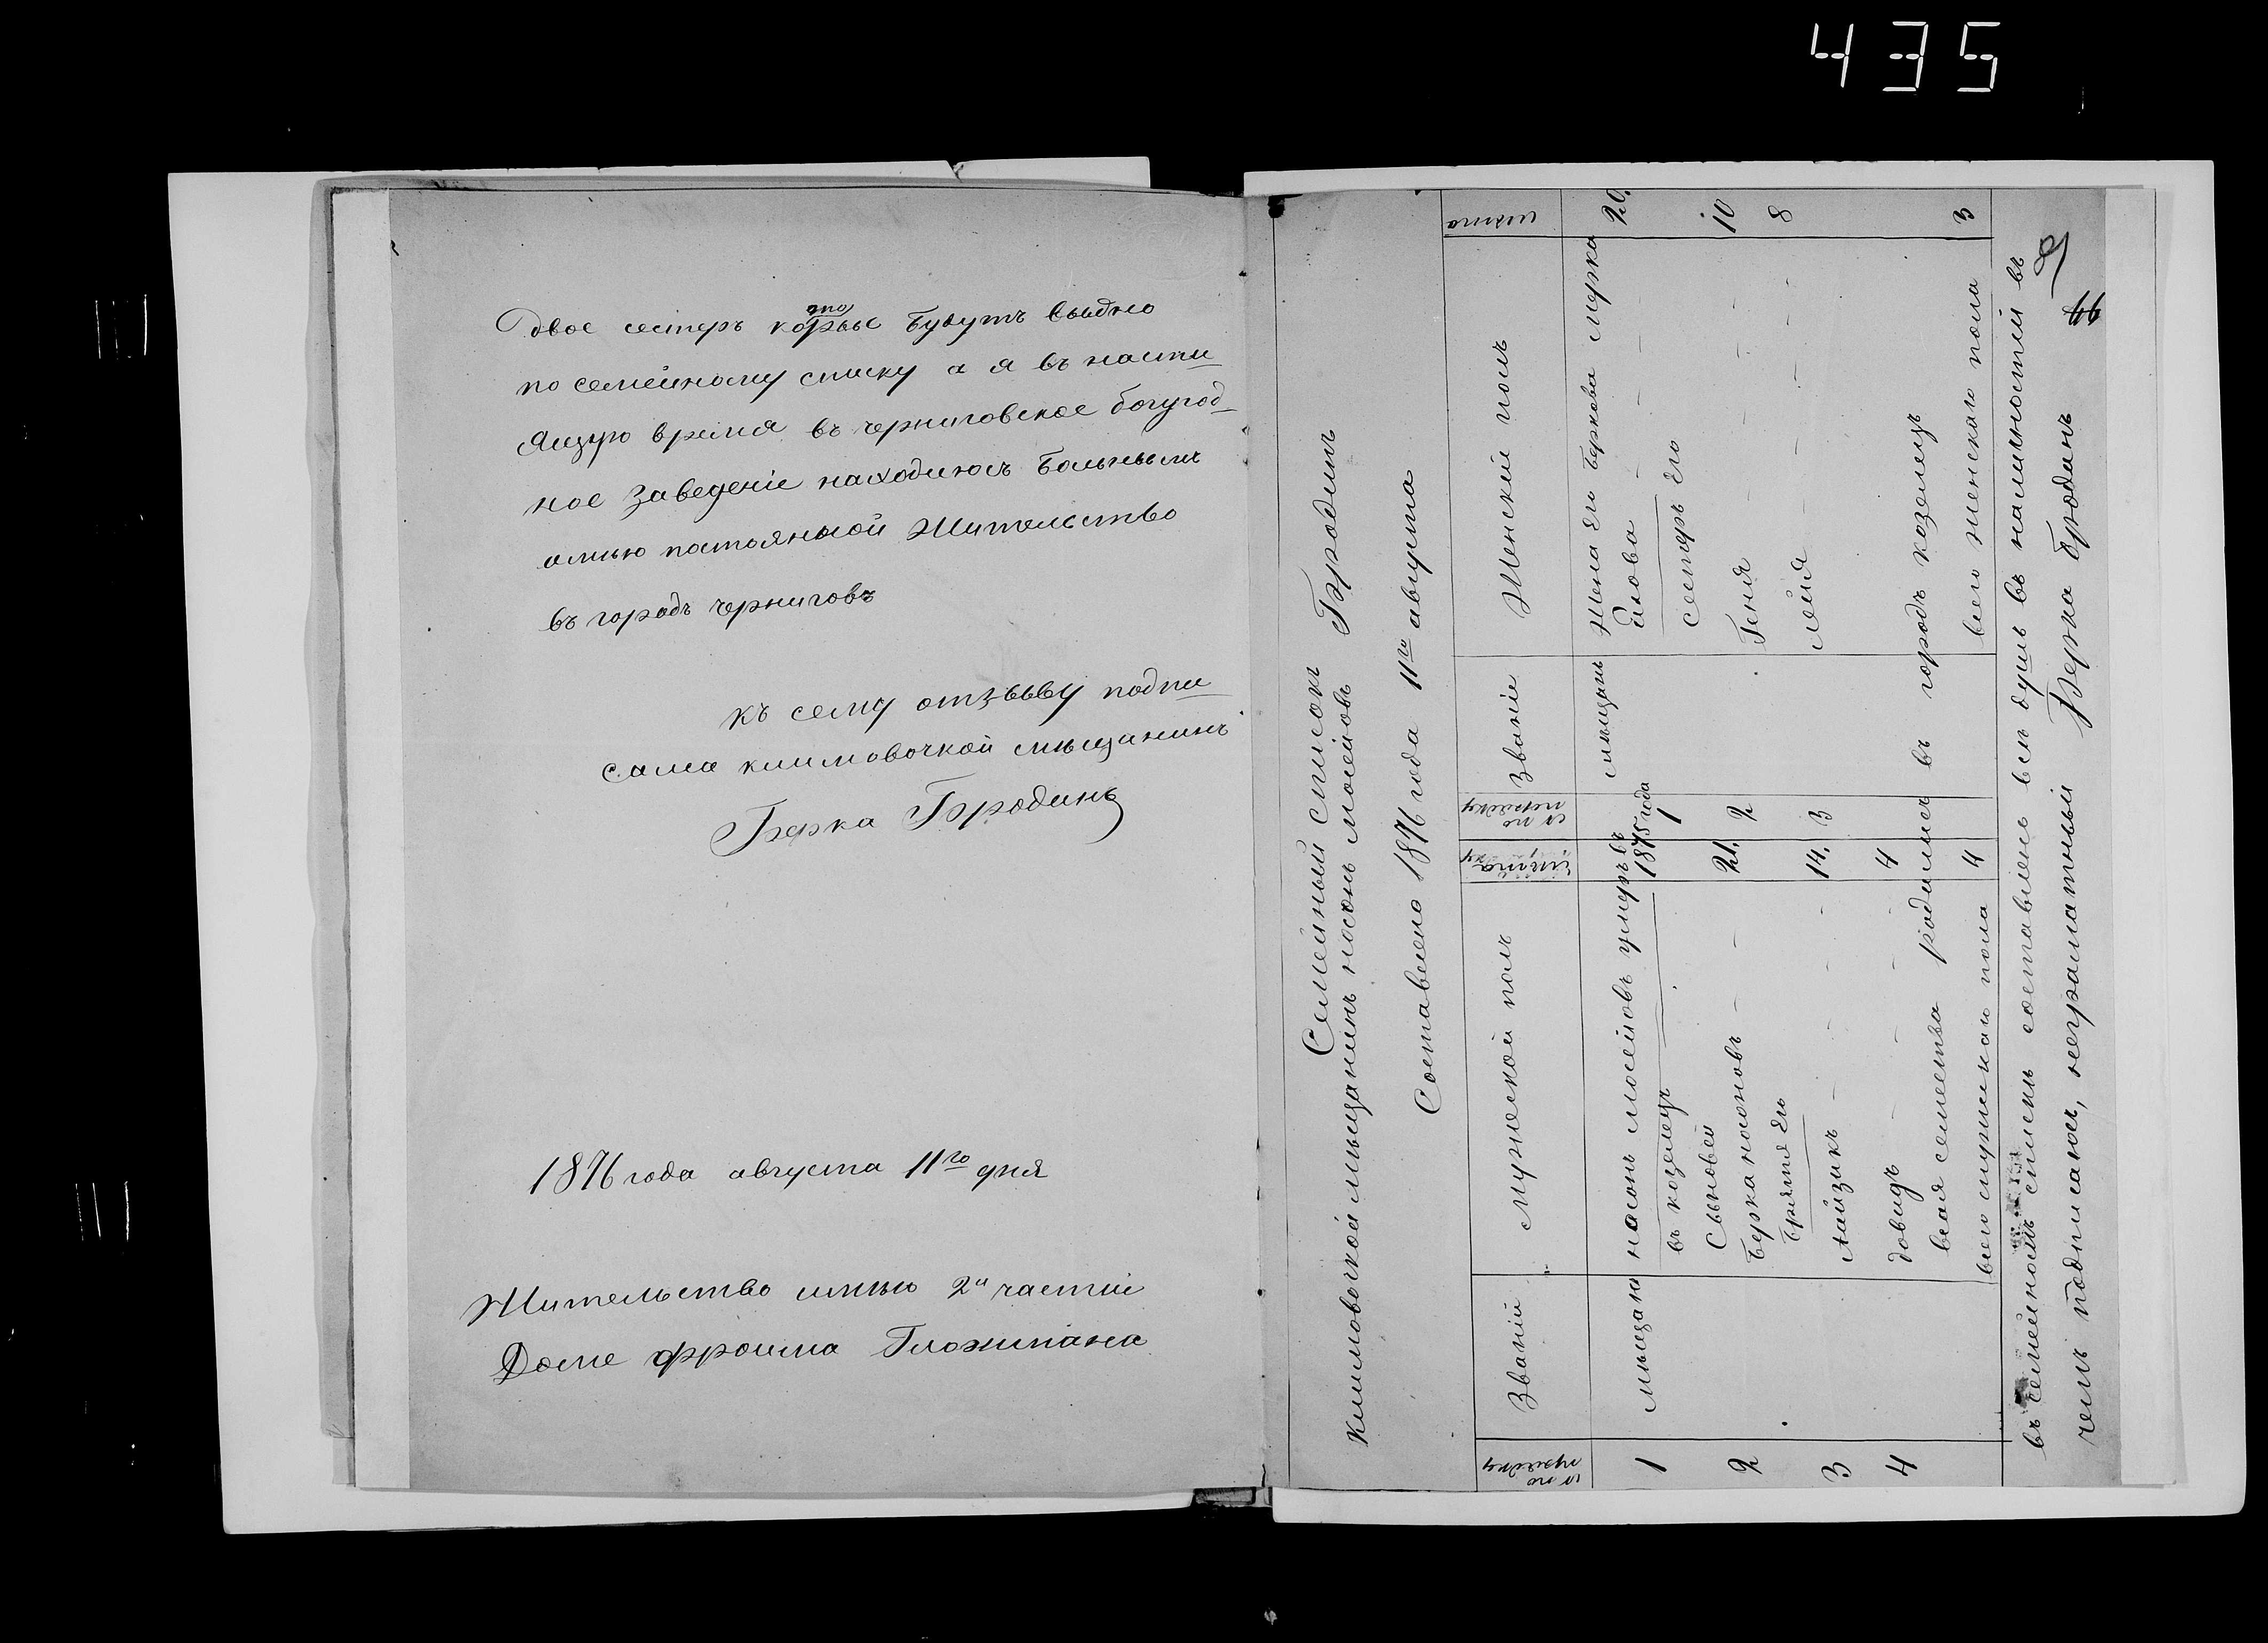 435
двое сестеръ которые будутъ выдно
по семейному списку а я въ насти
ящую время въ черниговское богугод
ное заведеніе нахожусь больнымъ
имѣю постояной жительство
въ городъ черниговъ
къ сему отзыву подпи
сался климовочкой мѣщанинъ
Берка Бродинъ
1876 года августа 11го дня
Жительство имѣю 2й частіи
Доме фроима
Семейный списокъ
климовочкой мѣщанинъ носонъ мосѣйовъ Бродинъ
Составлено 1876 года 11го августа
№ по порядку
Званіи
Мужеской полъ
лѣта
№ по порядку
Званіе
Женскій полъ
лѣта
1
мѣщанъ
носонъ мосейовъ умеръ въ
въ козелецъ
1875 года
1
мѣщанъ
Жена его беркова мерка
20.
2
Сыновей
берка носоновъ
21.
сестеръ его
2
Геня
10
братя его
3
Айзикъ
14.
3
лея
8
4
довидъ
4
всая семества родились въ городъ козелецъ
всего мужескаго пола
4
всего женскаго пола
3
въ семейномъ списки составленъ всѣ душъ въ налычностіи въ
чемъ подписаюсь, неграматный Берка бродинъ